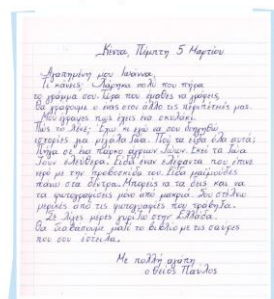 Κένυα, Πέμπτη 5 Μαρτίου
Αγαπημένη μου Ιωάννα,
Τι κάνεις; Χάρηκα πολύ που πήρα
το γράμμα σου. Τώρα που έμαθες να γράφεις,
θα γράφουμε ο ένας στον άλλο τις περιπέτειές μας.
Μου έγραψες πως έχεις ένα σκυλάκι.
Πώς το λένε; Έχω κι εγώ να σου διηγηθώ
ιστορίες με μεγάλα ζώα. Πού τα είδα όλα αυτά;
Πήγα σε ένα πάρκο άγριων ζώων. Εκεί τα ζώα
ζουν ελεύθερα. Είδα έναν ελέφαντα που έπινε
νερό με την προβοσκίδα του. Είδα μαϊμούδες
πάνω στα δέντρα. Μπορείς να τα δεις και να
τα φωτογραφίσεις μόνο από μακριά. Σου στέλνω
μερικές από τις φωτογραφίες που τράβηξα.
Σε λίγες μέρες γυρίζω στην Ελλάδα.
Θα διαβάσουμε μαζί το βιβλίο με τις σαύρες
που σου έστειλα.
Με πολλή αγάπη
ο θείος Παύλος